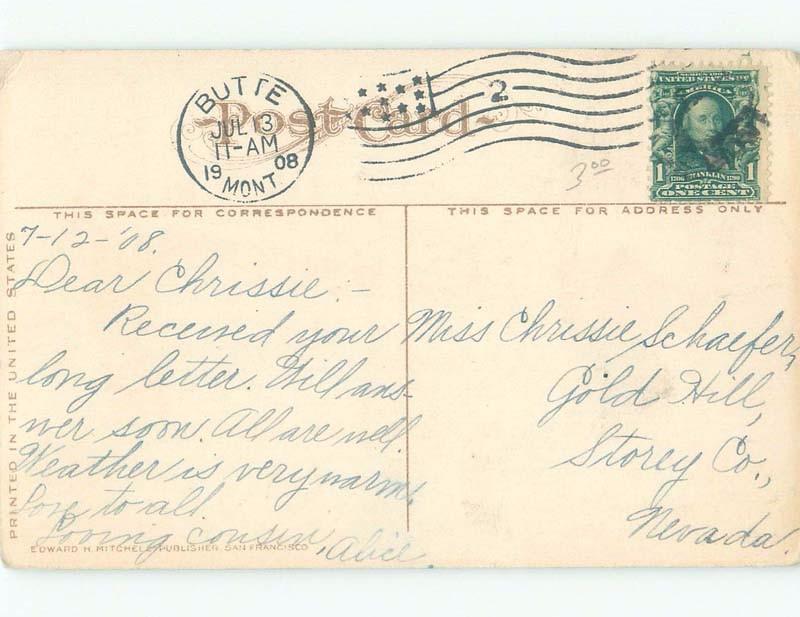 BUTTE
JUL 13
11-AM
19 08
MONT
2
Post Card
SERIES 1902
UNITED STATES OF
AMERICA
1 1706 FRANKLIN 1790 1
POSTAGE
ONE CENT
3.00
THIS SPACE FOR CORRESPONDENCE
THIS SPACE FOR ADDRESS ONLY
PRINTED IN THE UNITED STATES
7-12-'08.
Dear Chrissie:-
Received your
long letter. Will ans-
wer soon. All are well.
Weather is very warm.
Love to all
Loving cousin,
Alice.
Miss Chrissie Schaefer,
Gold Hill,
Storey Co.,
Nevada.
EDWARD H. MITCHELL, PUBLISHER, SAN FRANCISCO